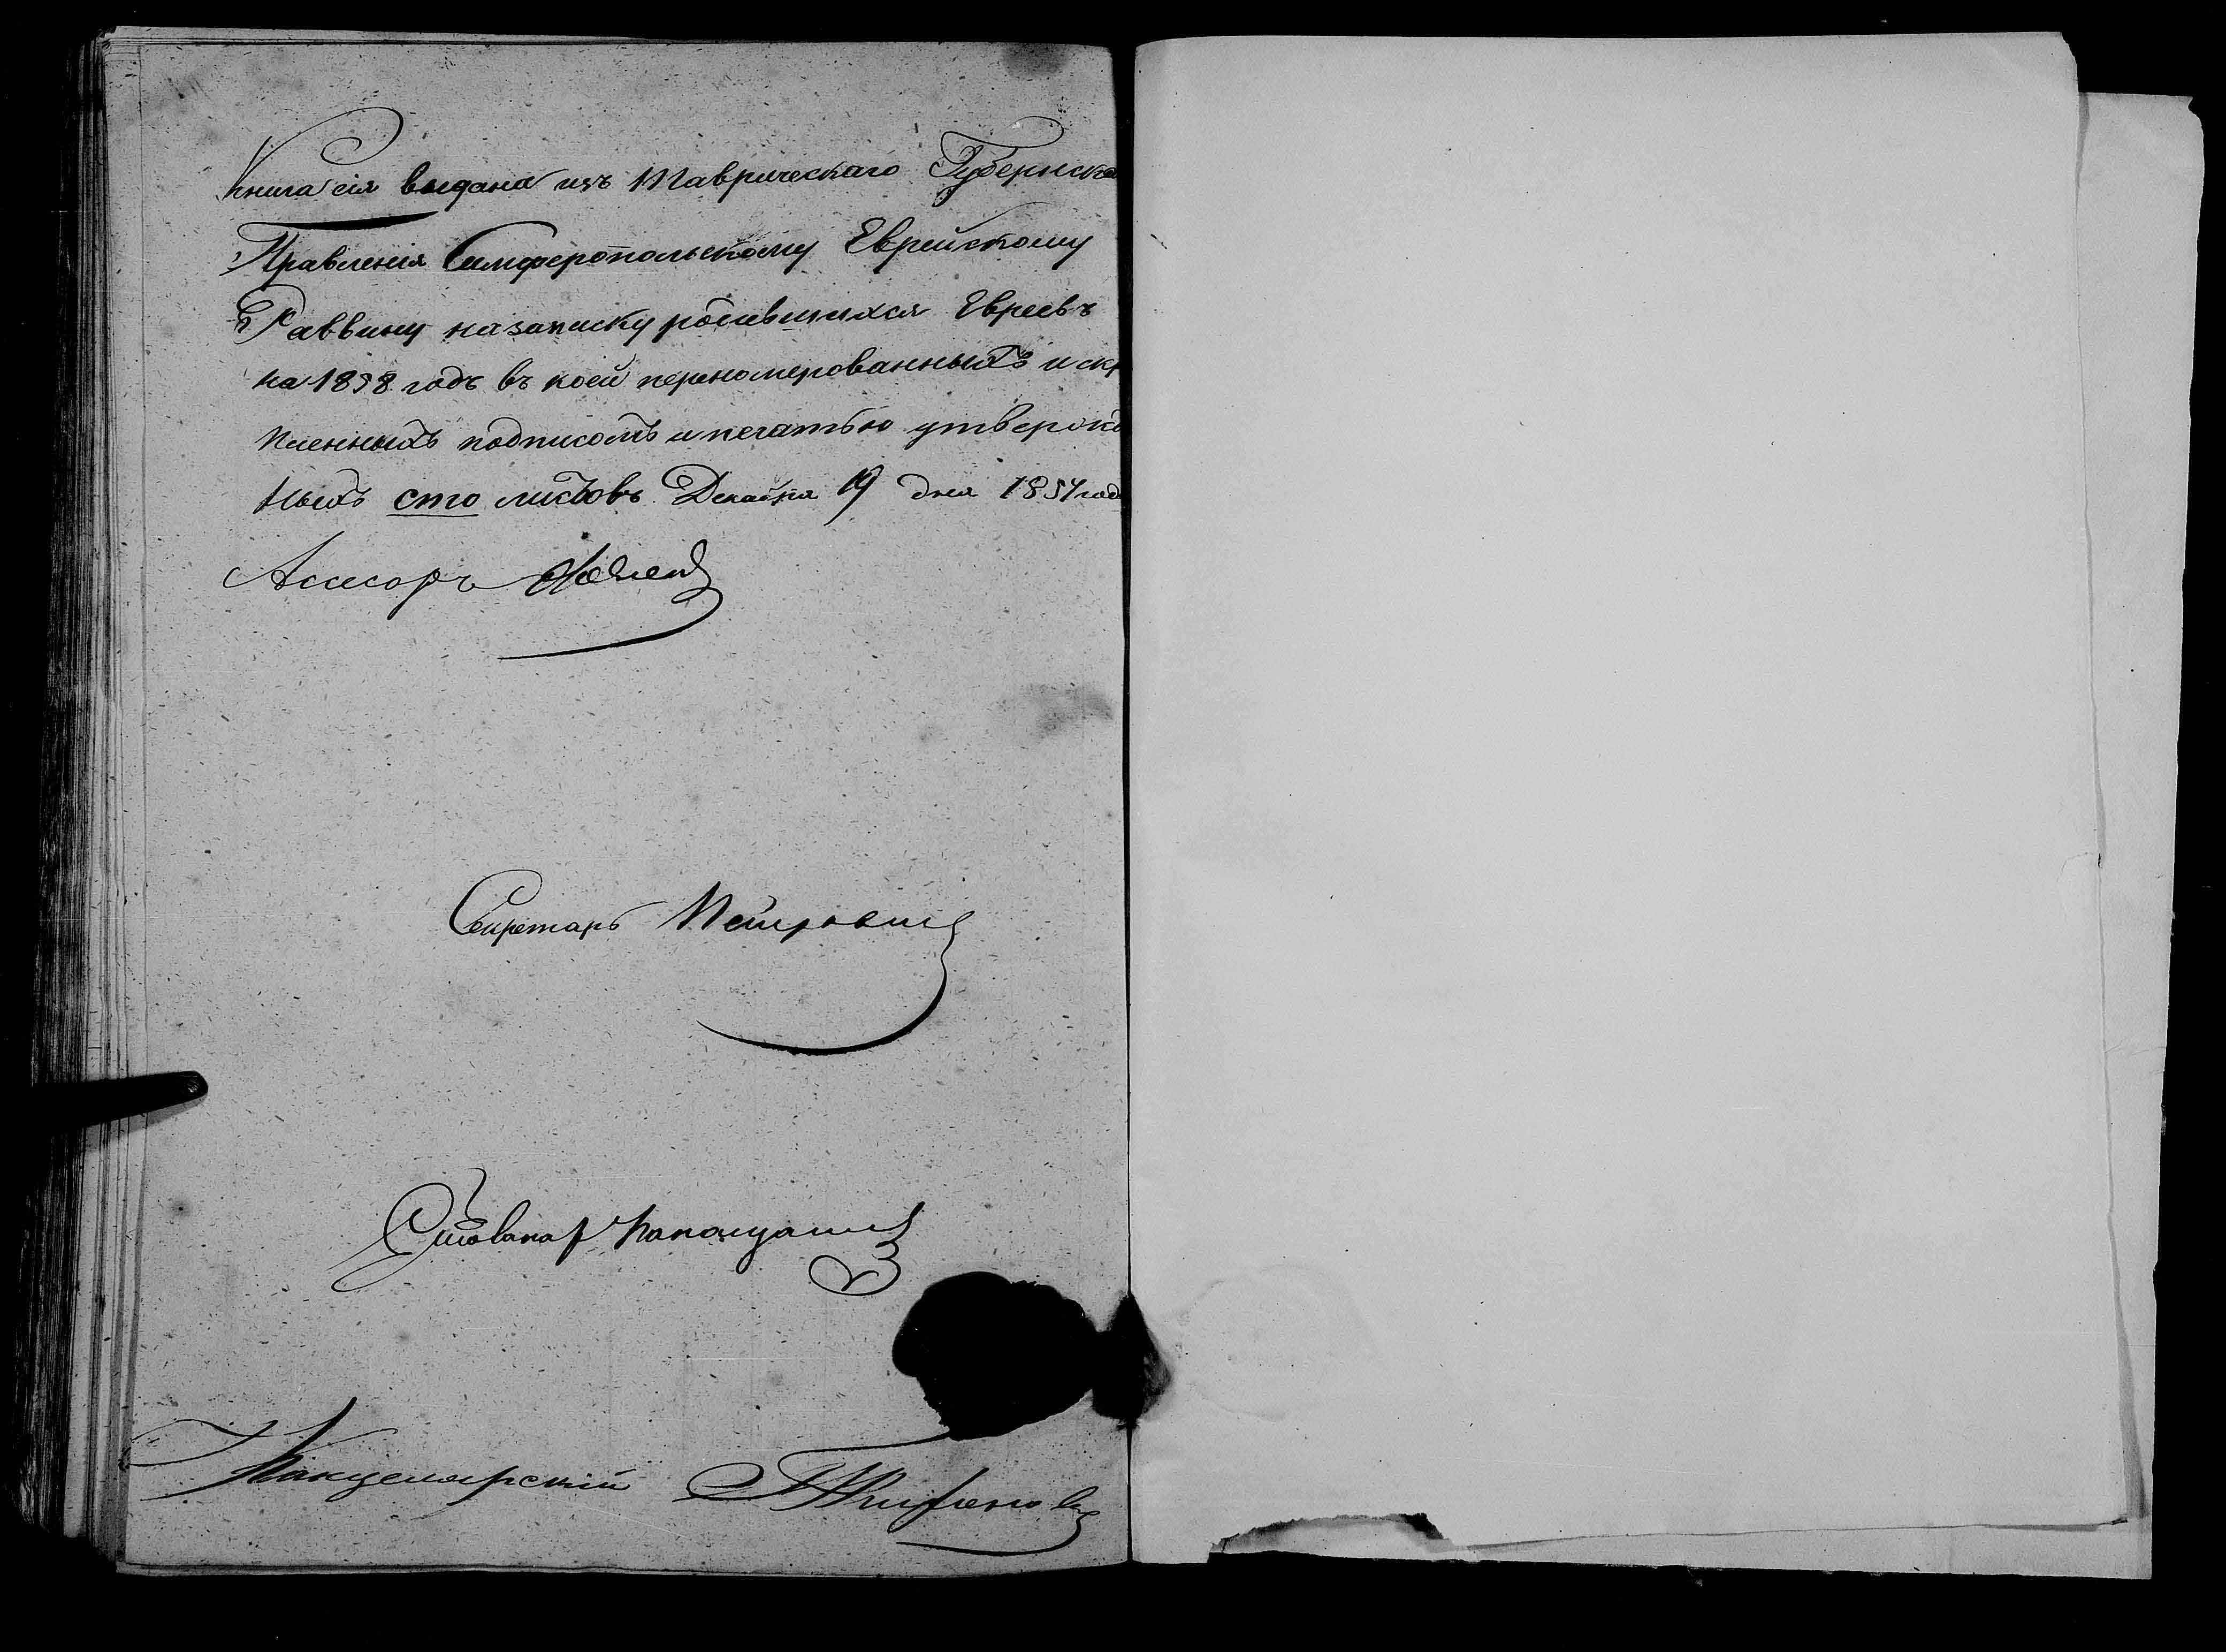 Книга сія выдана изъ Таврическаго Губернска
Правленія Симферопольскому Еврейскому
Раввину на записку родившихся Евреевъ
на 1858 годъ въ коей перономерованныхъ и скр
пленныхъ подписомъ и печатью утвержд
ныхъ сто листовъ. Декабря 19 дня 1857 год
Асессоръ
Секретарь Петровичъ
Канцелярскій